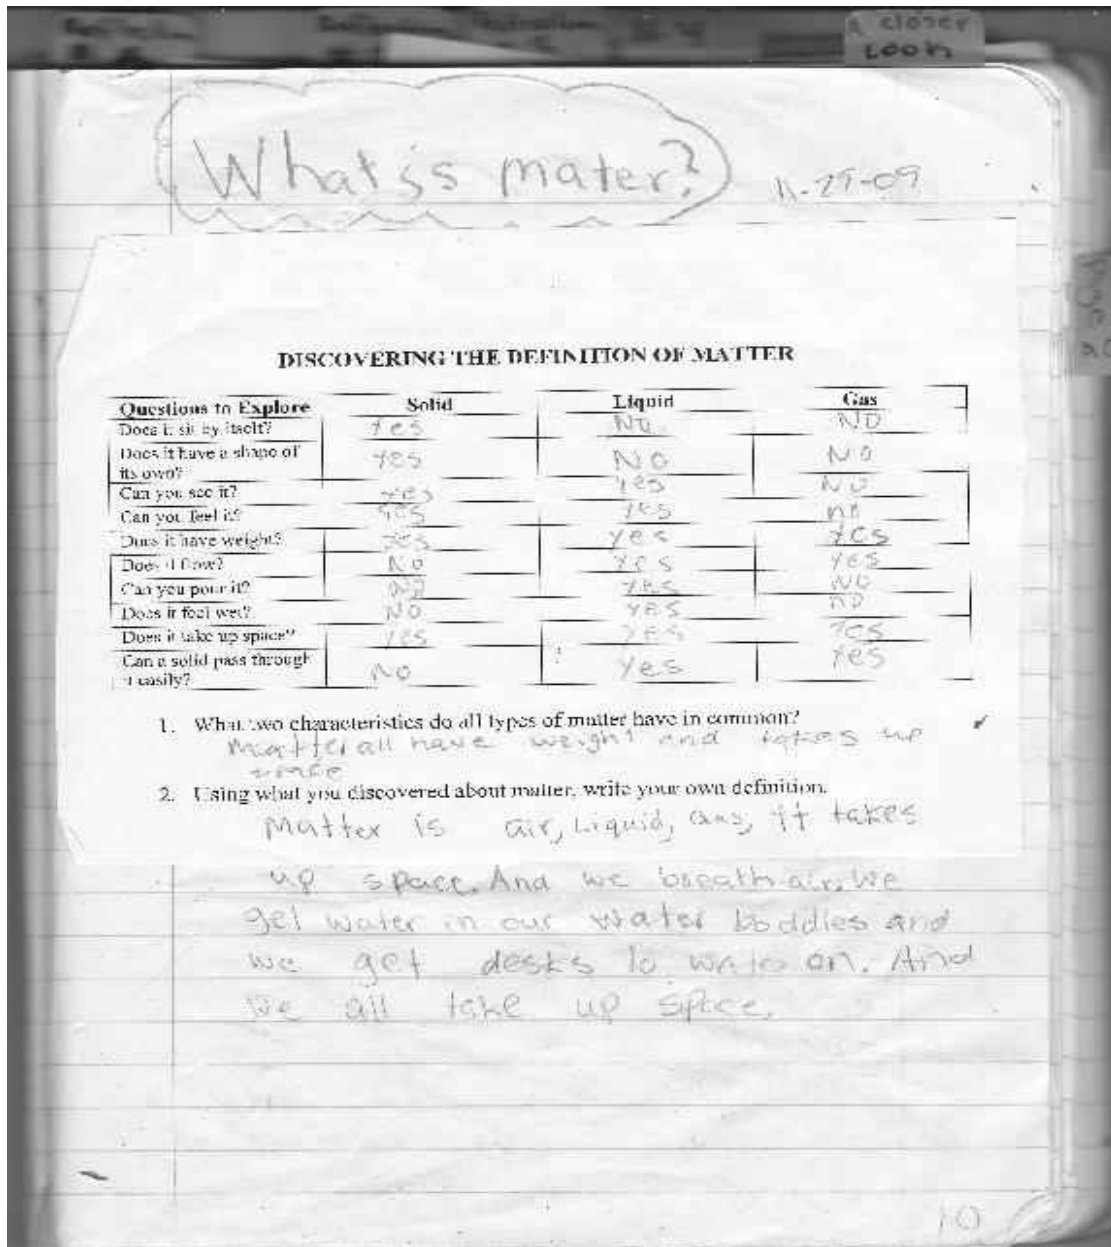 A closer
Look
What is mater?
11-29-09
DISCOVERING THE DEFINITION OF MATTER
Questions to Explore Solid Liquid Gas
Does it sit by itself? Yes No NO
Does it have a shape of
its own? Yes NO NO
Can you see it? Yes Yes NO
Can you feel it? Yes Yes no
Does it have weight? Yes Yes Yes
Does it flow? NO Yes Yes
Can you pour it? NO Yes NO
Does it feel wet? NO Yes NO
Does it take up space? Yes Yes Yes
Can a solid pass through
it easily? NO Yes Yes
1. What two characteristics do all types of matter have in common?
Matter all have weight and takes up
space
2. Using what you discovered about matter, write your own definition.
Matter is air, Liquid, gas, it takes
up space. And we breath air. We
get water in our water boddies and
we get desks to on. And
We all take up space.
10